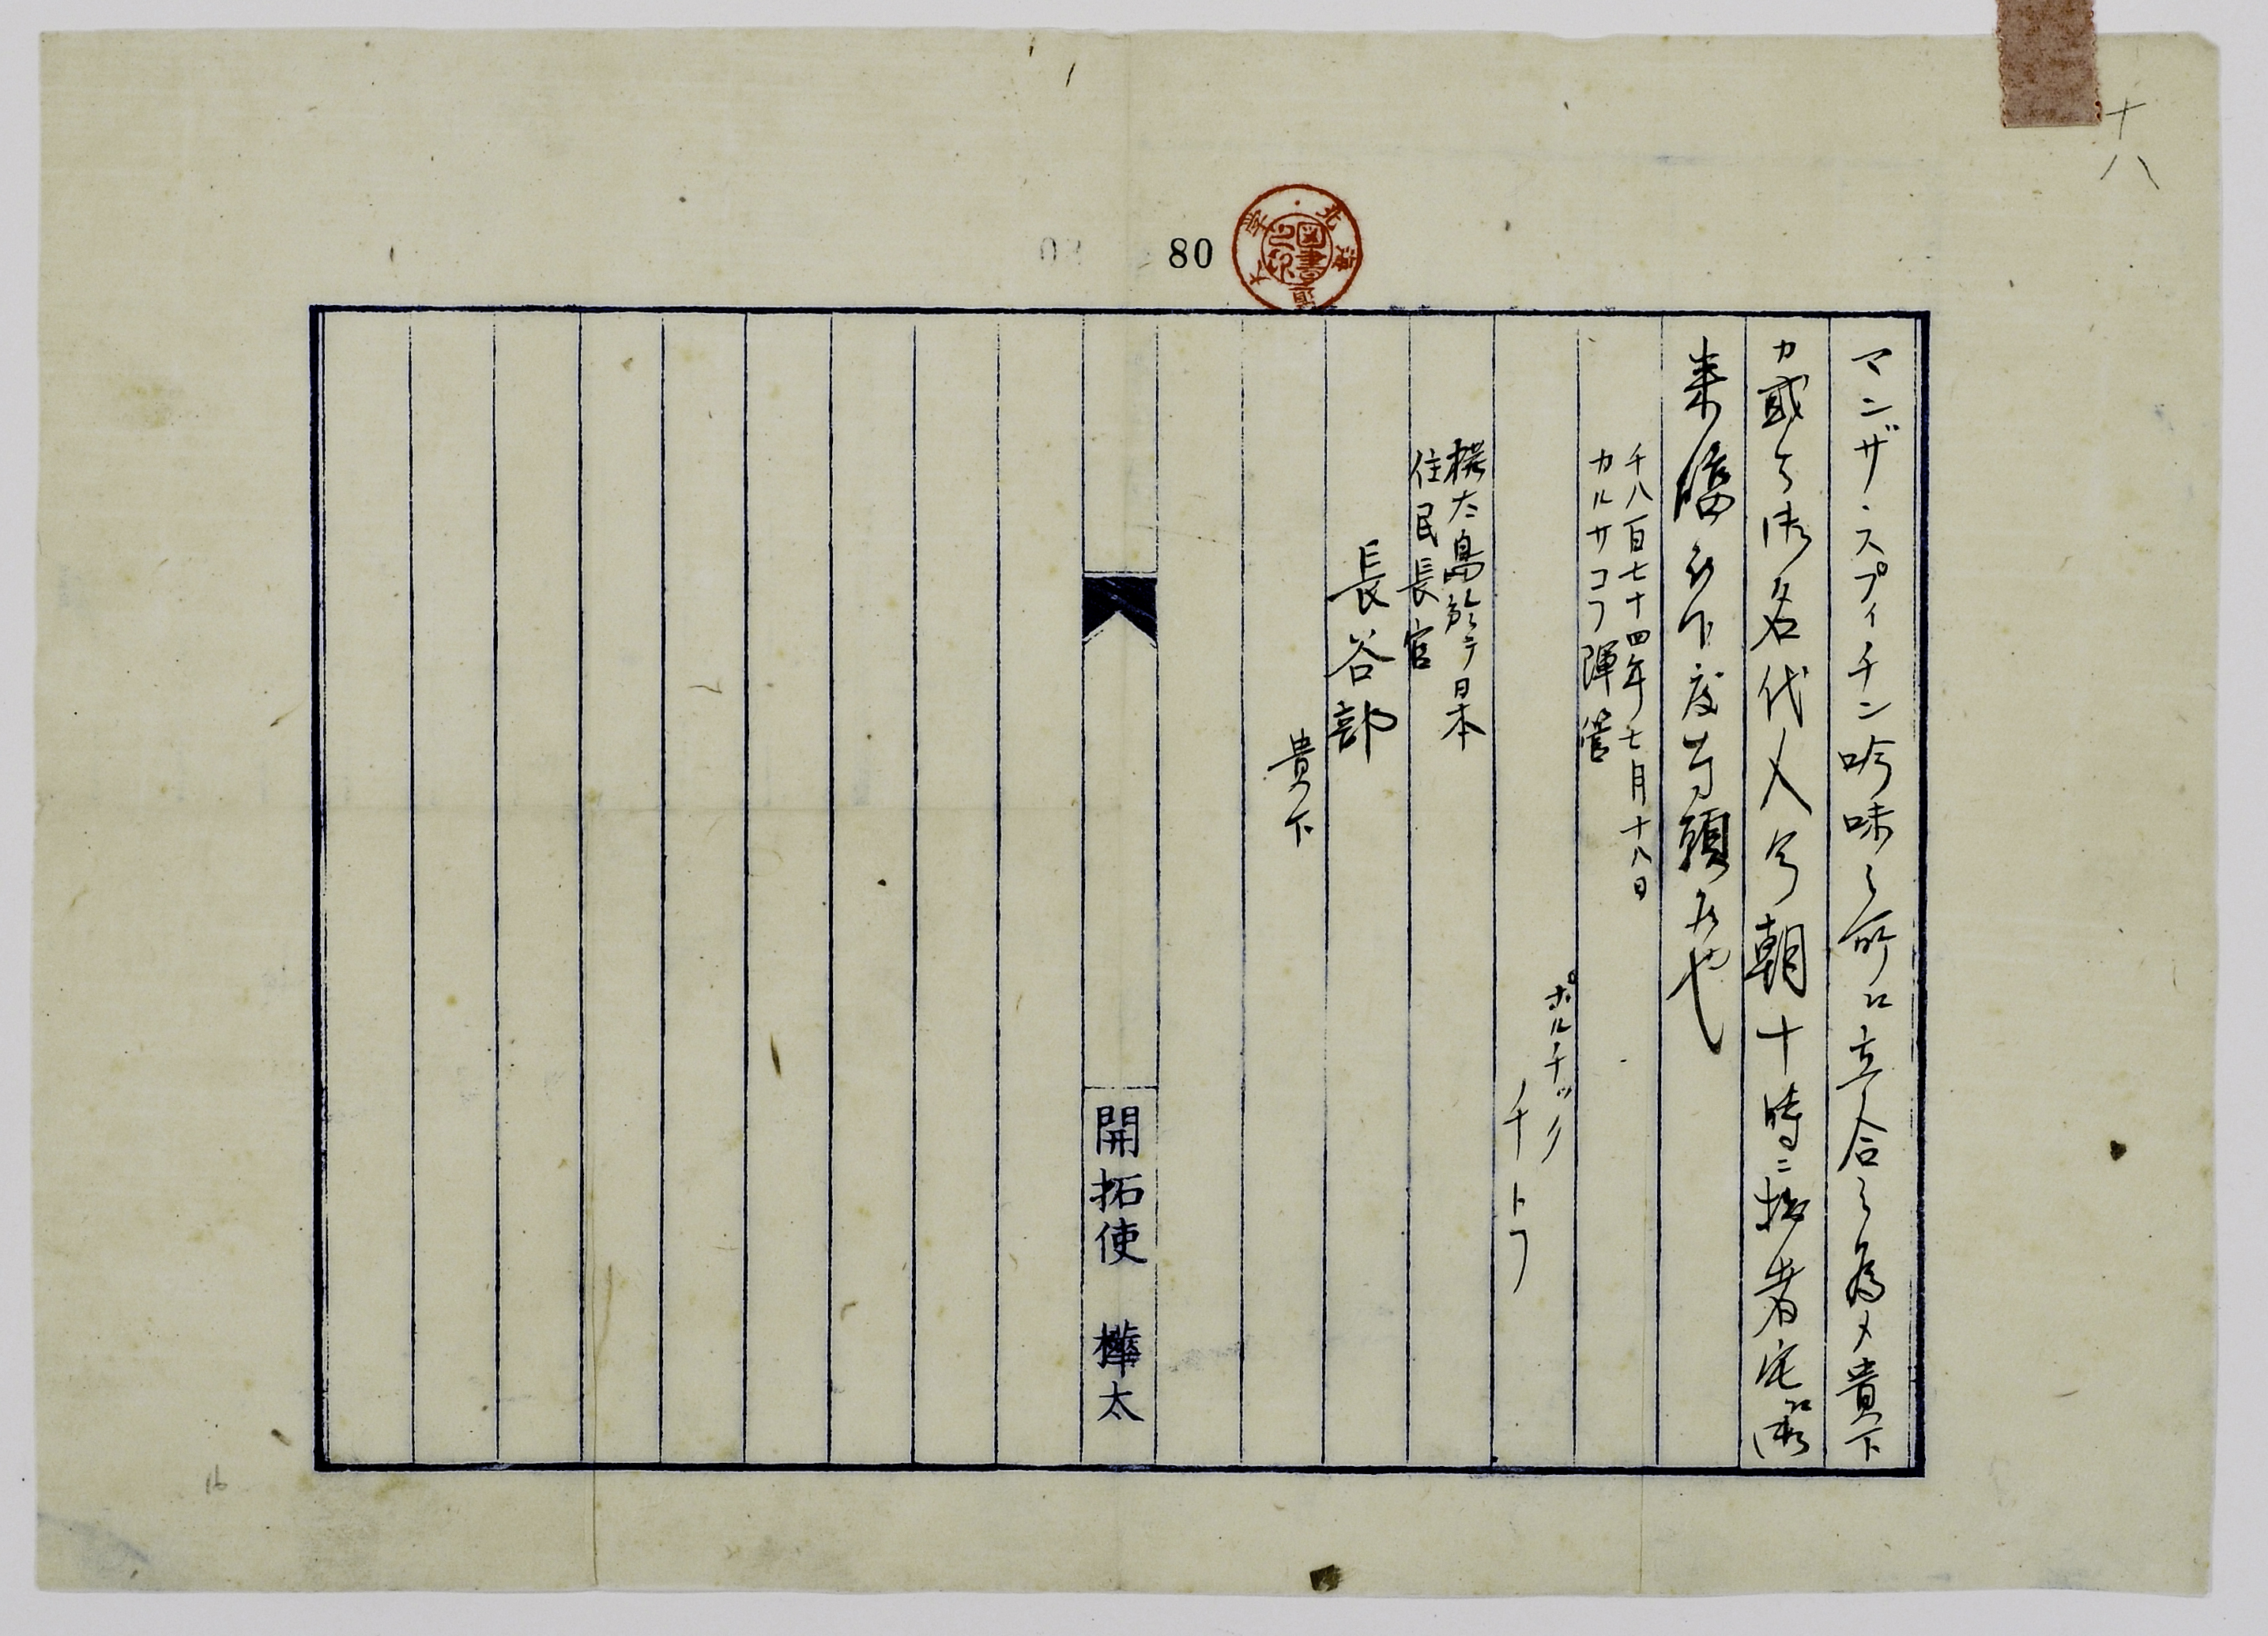 十八
80
北海
大学
図書
マンザ、スプィチン吟味之所江立合之為メ貴下
カ或ハ御名代人今朝十時ニ拙者宅江御
来臨被下度奇頼存也
千八百七十四年七月十八日
カルサコフ陣営
ポルチック
チトフ
樺太島於テ日本
住民長官
長谷部
貴下
開拓使 樺太
16